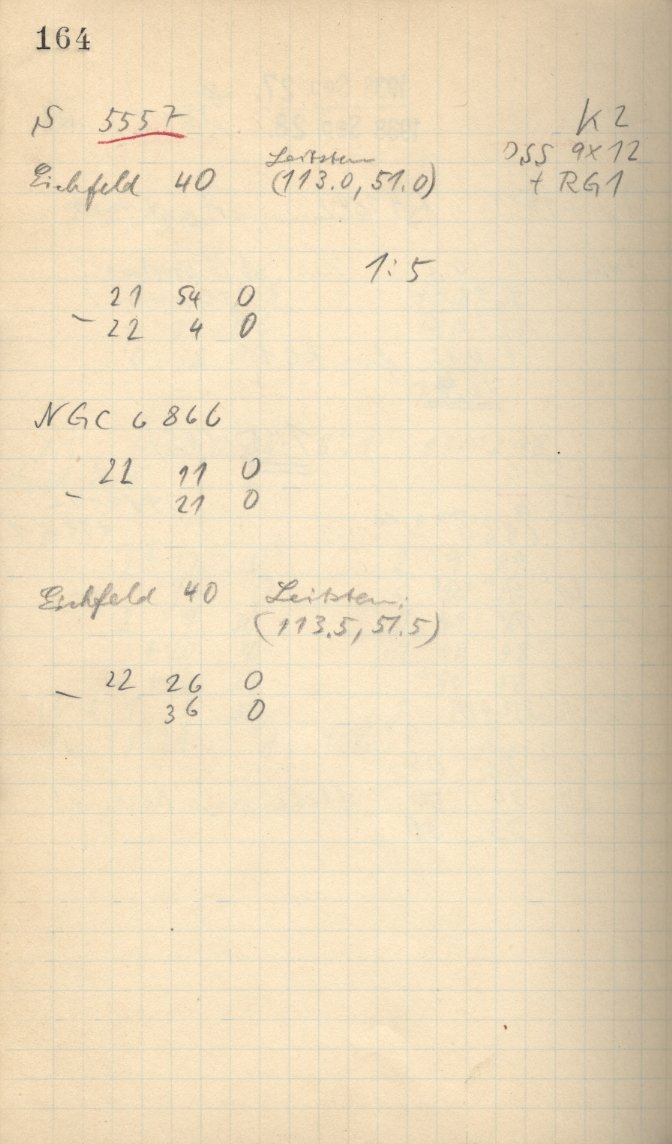 164
S 5557 K2
Leitstern DSS 9x12
Eichfeld 40 (113.0, 51.0) + RG1
1:5
21 54 0
– 22 4 0
NGC 6866
22 11 0
– 21 0
Eichfeld 40 Leitstern:
(113.5, 51.5)
– 22 26 0
36 0